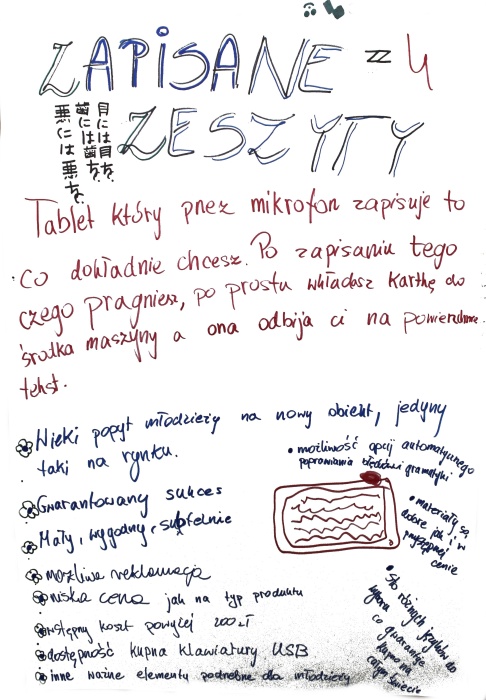 ZAPISANE = 4
ZESZYTY
目には目を、
歯には歯を、
悪には悪を、
Tablet który przez mikrofon zapisuje to
co dokładnie chcesz. Po zapisaniu tego
czego pragniesz, po prostu wkładasz kartkę do
środka maszyny a ona odbija ci na powierzchnie
tekst.
popyt młodzieży na nowy obiekt, jedyny
taki na rynku.
Gwarantowany sukces
Mały, wygodny, subtelnie
możliwa reklamacja
niska cena jak na typ produktu
wstępny koszt powyżej 200zł
dostępność kupna klawiatury USB
inne ważne elementy podrebne dla młodzieży
• możliwość opcji automatycznego
poprawiania błędów gramatyki
• materiały są
dobre jak i w
przystępnej
cenie
• Sto różnych języków do
wyboru
co gwarantuje
kupno na
całym świecie